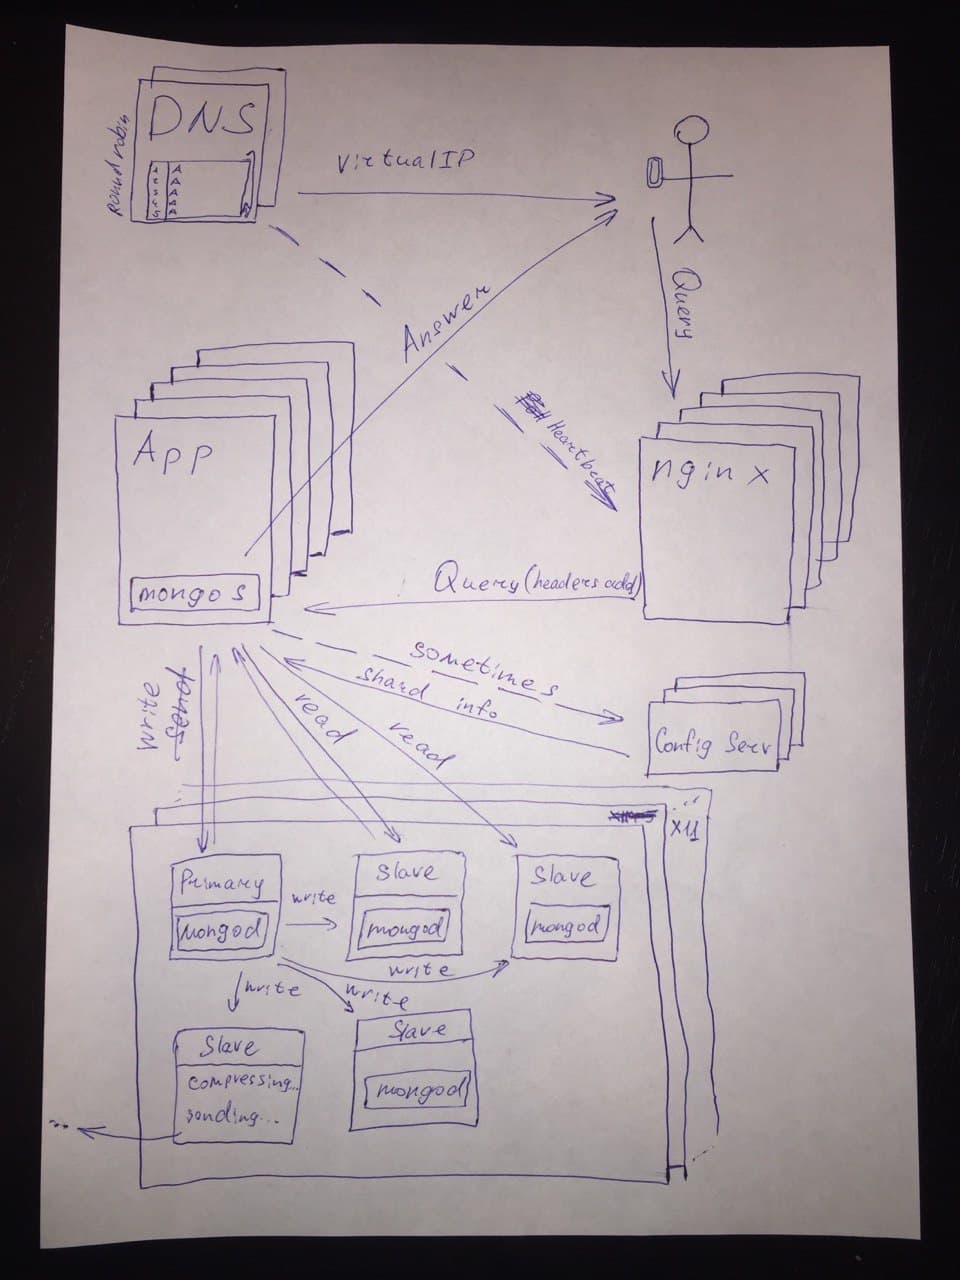 DNS
Round robin
A
A
A
A
A
Virtual IP
Query
Answer
Heartbeat
App
mongos
nginx
Query (headers add)
sometimes
shard
info
Config Serv
write
send
read
read
x11
Primary
mongod
write
Slave
mongod
Slave
mongod
write
write
write
Slave
compressing...
sending...
Slave
mongod
...